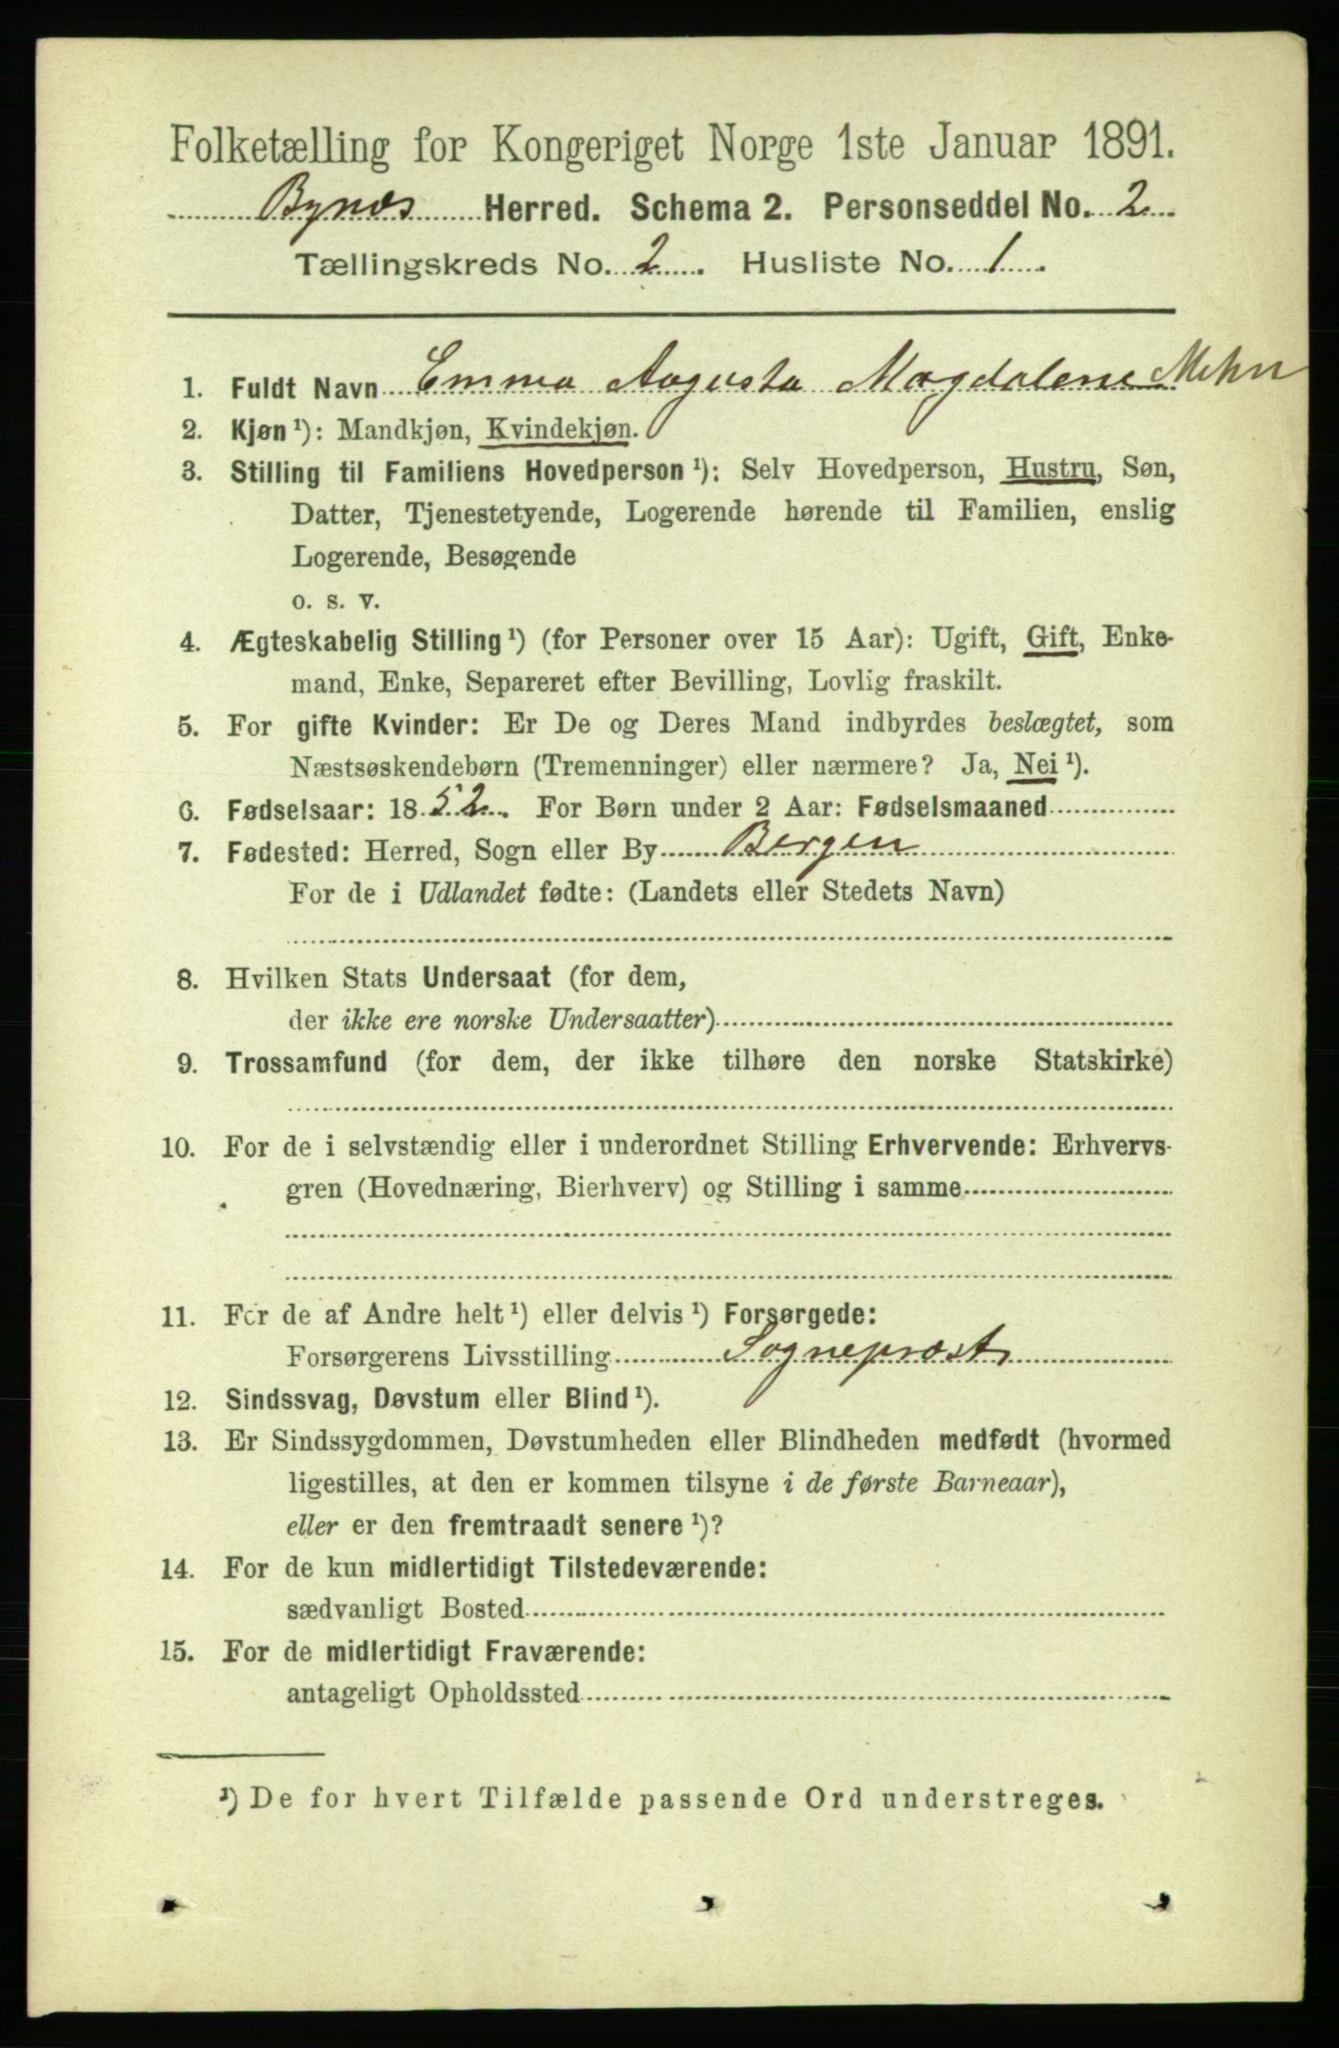 Folketælling for Kongeriget Norge 1ste Januar 1891.
Bynæs Herred. Schema 2. Personseddel No. 2
Tællingskreds No. 2. Husliste No. 1
1. Fuldt Navn Emma Augusta Magdalene Mehn
2. Kjøn ¹): Mandkjøn, Kvindekjøn.
3. Stilling til Familiens Hovedperson ¹): Selv Hovedperson, Hustru, Søn,
Datter, Tjenestetyende, Logerende hørende til Familien, enslig
Logerende, Besøgende
o. s. v.
4. Ægteskabelig Stilling ¹) (for Personer over 15 Aar): Ugift, Gift, Enke-
mand, Enke, Separeret efter Bevilling, Lovlig fraskilt.
5. For gifte Kvinder: Er De og Deres Mand indbyrdes beslægtet, som
Næstsøskendebørn (Tremenninger) eller nærmere? Ja, Nei ¹).
6. Fødselsaar: 1852. For Børn under 2 Aar: Fødselsmaaned
7. Fødested: Herred, Sogn eller By Bergen
For de i Udlandet fødte: (Landets eller Stedets Navn)
8. Hvilken Stats Undersaat (for dem,
der ikke ere norske Undersaatter)
9. Trossamfund (for dem, der ikke tilhøre den norske Statskirke)
10. For de i selvstændig eller i underordnet Stilling Erhvervende: Erhvervs-
gren (Hovednæring, Bierhverv) og Stilling i samme
11. For de af Andre helt ¹) eller delvis ¹) Forsørgede:
Forsørgerens Livsstilling Sognepræst
12. Sindssvag, Døvstum eller Blind ¹).
13. Er Sindssygdommen, Døvstumheden eller Blindheden medfødt (hvormed
ligestilles, at den er kommen tilsyne i de første Barneaar),
eller er den fremtraadt senere ¹)?
14. For de kun midlertidigt Tilstedeværende:
sædvanligt Bosted
15. For de midlertidigt Fraværende:
antageligt Opholdssted
¹) De for hvert Tilfælde passende Ord understreges.